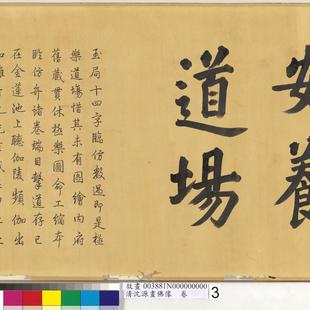 安養
道場
玉局十四字臨仿數過即是極
樂道場惜其未有圖繪內府
舊藏貫休極樂圖命工縮本
臨仿弁諸卷端目擊道存已
在金蓮池上聽伽陵頻伽出
故畫 003881N000000000
清沈源畫佛像 卷
3